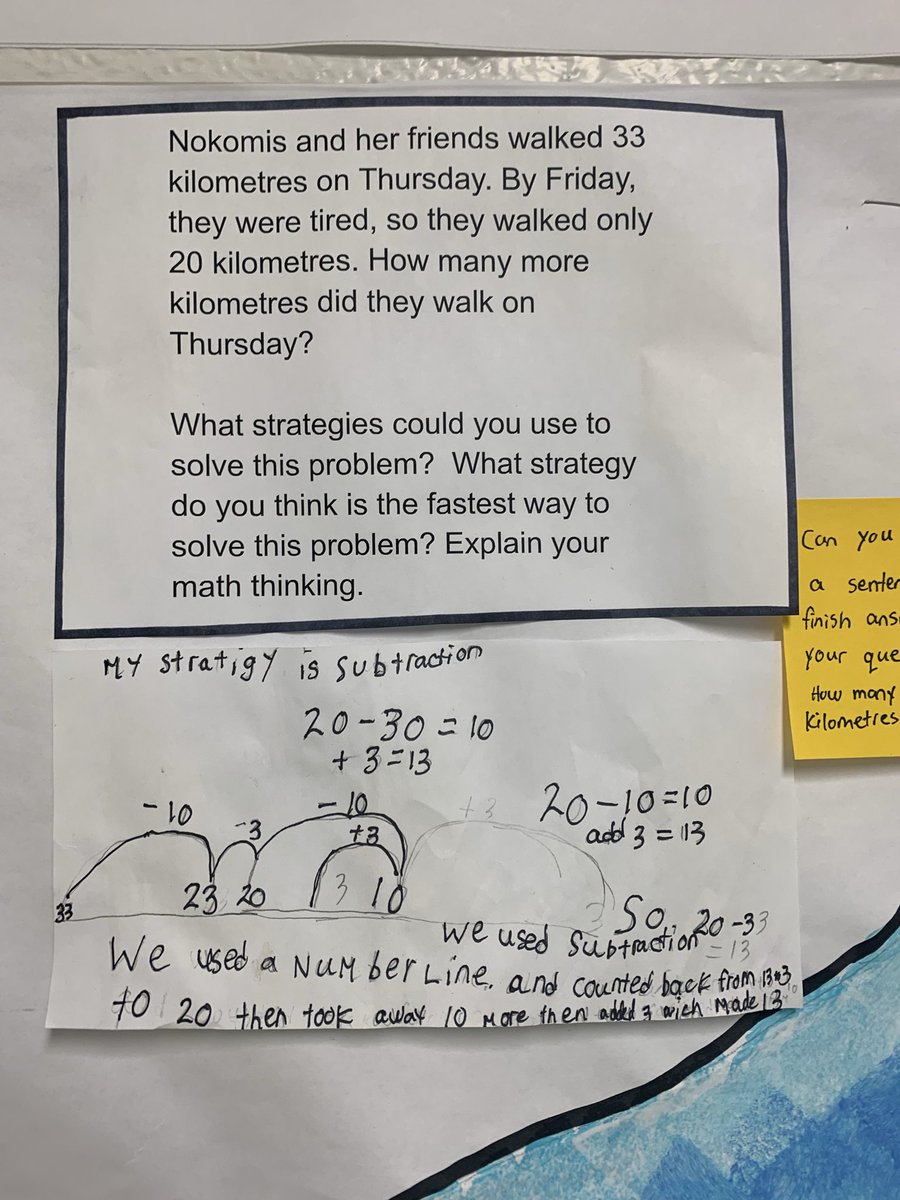 Nokomis and her friends walked 33
kilometres on Thursday. By Friday,
they were tired, so they walked only
20 kilometres. How many more
kilometres did they walk on
Thursday?
What strategies could you use to
solve this problem? What strategy
do you think is the fastest way to
solve this problem? Explain your
math thinking.
Can you
a senten
finish ans
your que
How many
kilometres
MY stratigy is subtraction
20-30=10
+ 3=13
20-10=10
add 3 = 13
-10 -3 -10 +3 +3
33 23 20 3 10
So, 20-33
=13
We used subtraction
We used a NumberLine. and counted back from
to 20 then took away 10 more then added 3 wich made 13